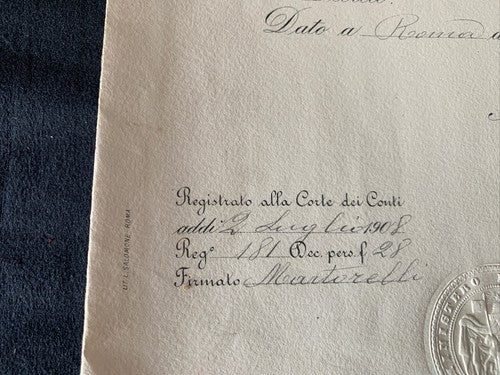 Dato a Roma a
Registrato alla Corte dei Conti
addì 2 Luglio 1908
Reg° 181 Dec. pers. f. 28
Firmato Martorelli
LIT. L. SALOMONE ROMA